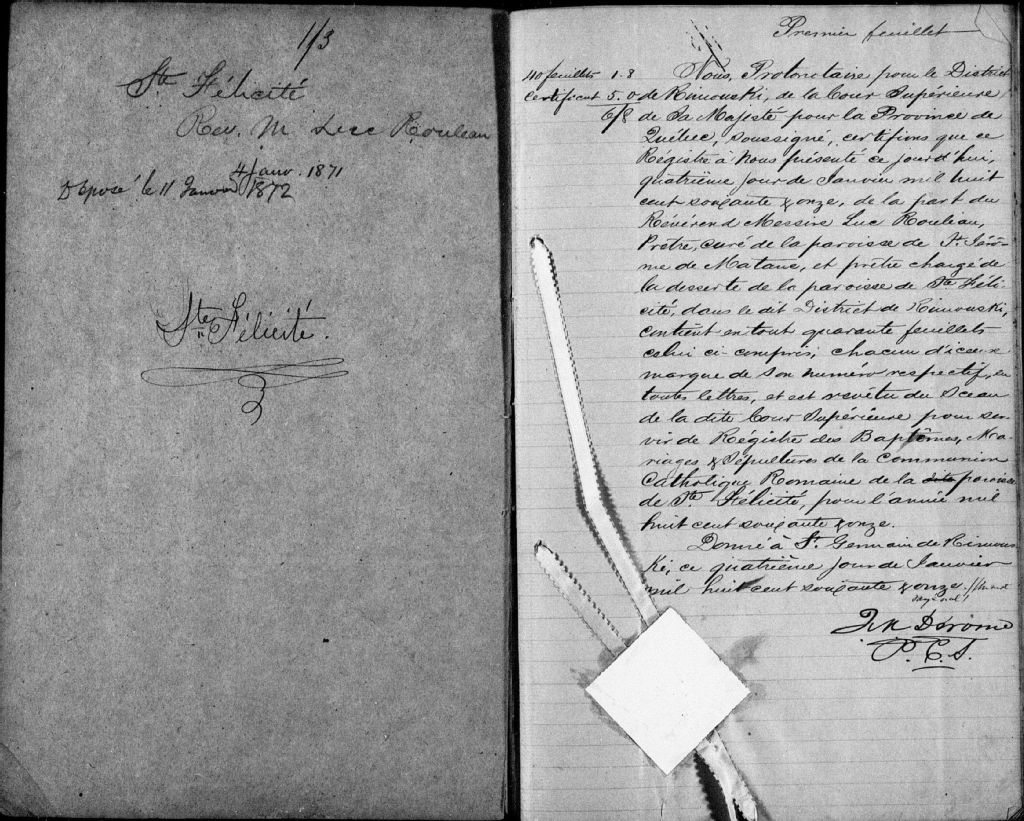 1/3
Ste Félicité
Rev. M. Luc Rouleau
4 Janv. 1871
Déposé le 11 Janvier 1872
Ste Félicité.
Premier feuillet
40 feuillets 1-8
Certificat 5.0
6/8
Nous, Protonotaire pour le District
de Rimouski, de la Cour Supérieure
de Sa Majesté pour la Province de
Québec, soussigné, certifions que ce
Régistre à Nous présenté ce jourd'hui,
quatrième jour de Janvier mil huit
cent soixante & onze, de la part du
Révérend Messire Luc Rouleau,
Prêtre, curé de la paroisse de St. Jérô-
me de Matane, et prêtre chargé de
la desserte de la paroisse de Ste Féli-
cité, dans le dit District de Rimouski,
contient en tout quarante feuillets
celui ci compris, chacun d'iceux
marqué de son numéro respectif, en
toutes lettres, et est revêtu du Sceau
de la dite Cour Supérieure pour ser-
vir de Régistre des Baptêmes, Ma-
riages & Sépultures de la Communion
Catholique Romaine de la paroisse
de Ste. Félicité, pour l'année mil
huit cent soixante & onze.
Donné à St. Germain de Rimous-
ki, ce quatrième jour de Janvier
mil huit cent soixante & onze.
Derome
P.C.S.